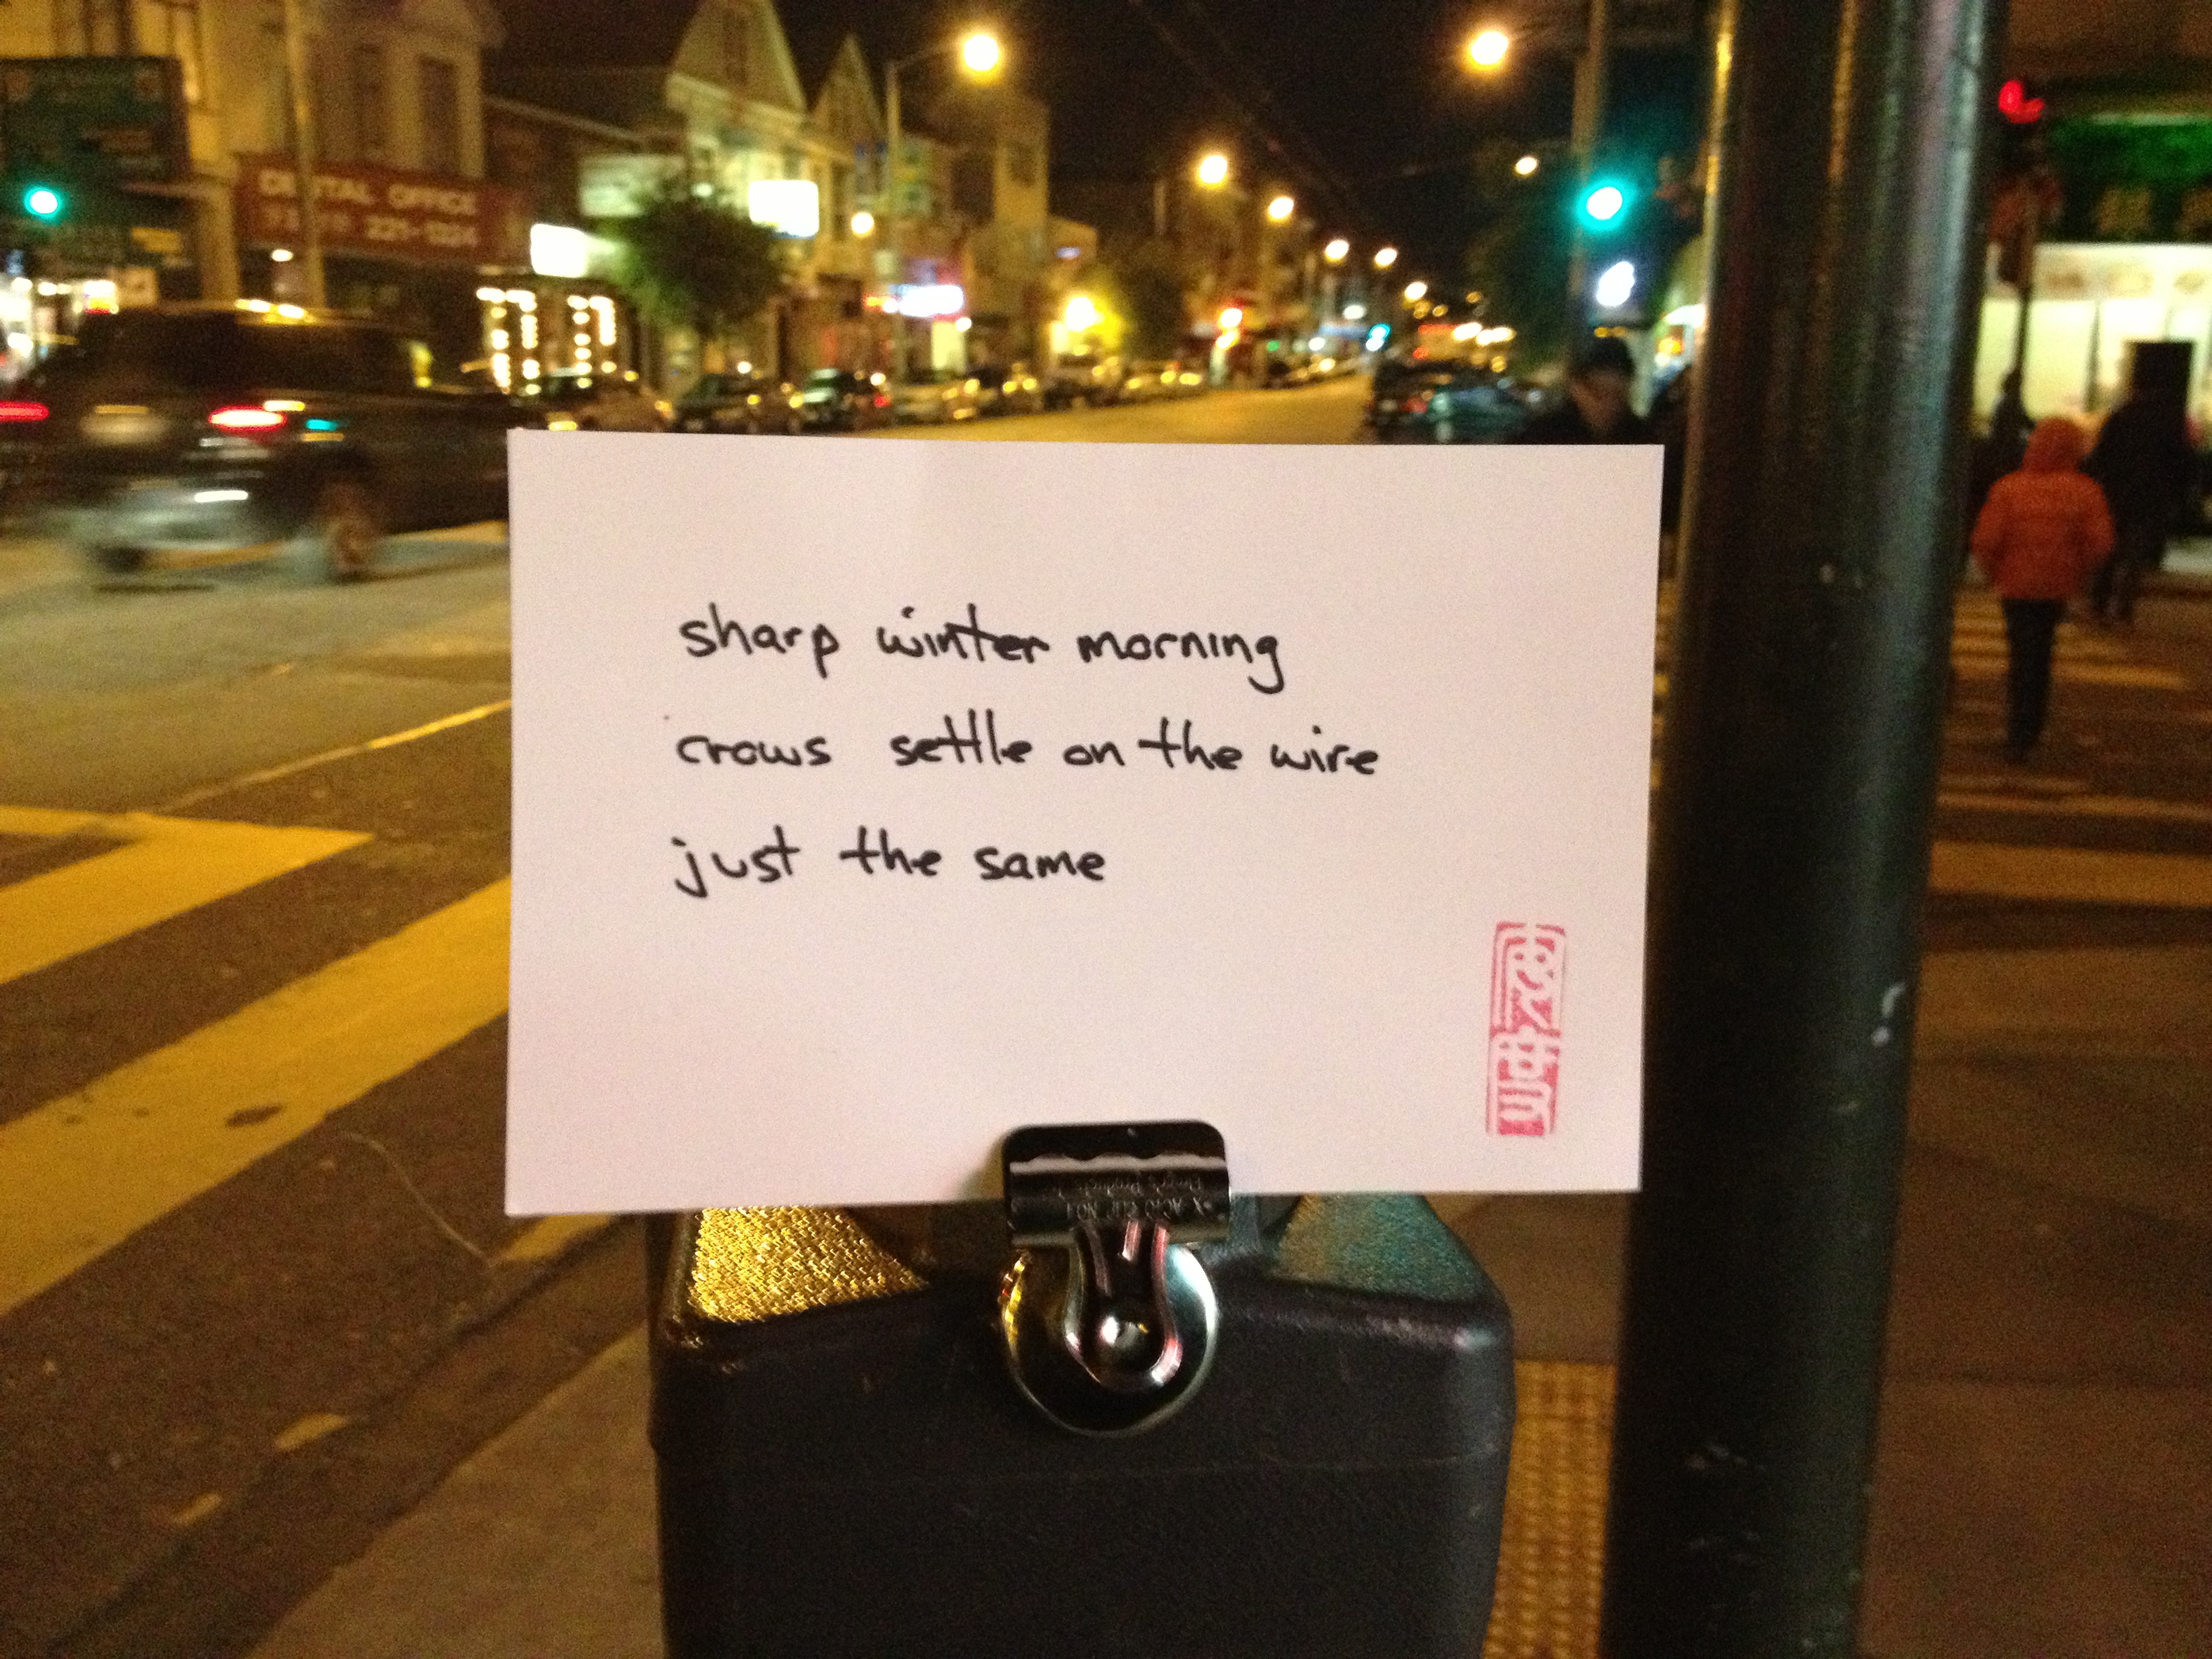 DENTAL OFFICE
sharp winter morning
crows settle on the wire
just the same